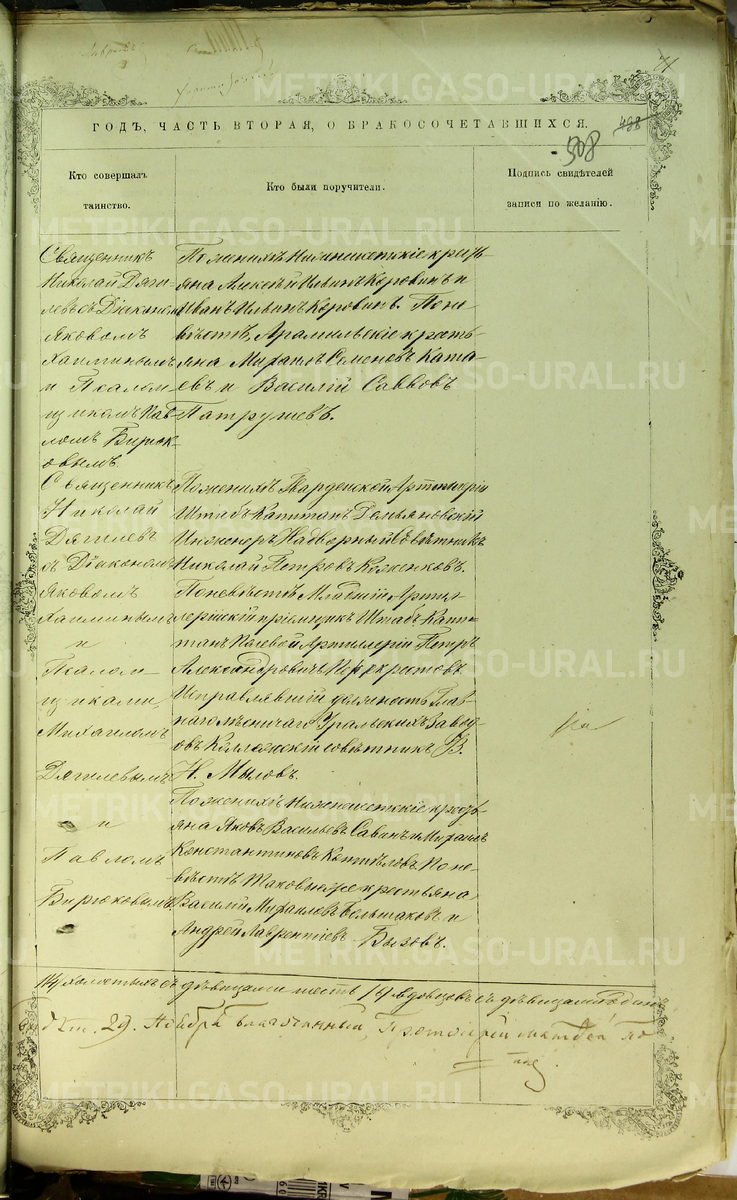 ГОДЪ, ЧАСТЬ ВТОРАЯ, О БРАКОСОЧЕТАВШИХСЯ.
498
508
Кто совершалъ таинство.
Кто были поручители.
Подпись свидѣтелей записи по желанію.
Священникъ
Николай Дяги-
левъ съ Діакономъ
Яковомъ
Хаминымъ
и Псалом-
щикомъ Пав-
ломъ Бирюк-
овымъ.
По женихѣ Нижнеисетскіе кресть-
яна Алексѣй Ильинъ Коровинъ и
Иванъ Ильинъ Коровинъ. По не-
вѣстѣ, Арамильскіе кресть-
яна Михаилъ Семеновъ Ката-
евъ и Василій Саввовъ
Патрушевъ.
Священникъ
Николай
Дягилевъ
съ Діакономъ
Яковомъ
Хаминымъ
и
Псалом-
щиками,
Михаиломъ
Дягилевымъ
и
Павломъ
Бирюковымъ.
По женихѣ Гвардейской Артиллеріи
Штабъ Капитанъ Демьяновскій
Инженеръ Надворный Совѣтникъ
Николай Петровъ
По невѣстѣ Младшій Артил-
лерійскій пріемщикъ Штабъ Капи-
танъ Полевой Артиллеріи Петръ
Александровичъ Перекрестовъ
Исправлявшій должность Глав-
наго Лѣсничаго Уральскихъ Завод-
овъ Коллежскій совѣтникъ В.
Н. Мыловъ.
По женихѣ Нижнеисетскіе кресть-
яна Яковъ Васильевъ Савинъ и Михаилъ
Константиновъ Котѣловъ. По не-
вѣстѣ Таковые же крестьяна
Василій Михаиловъ Большаковъ и
Андрей Лаврентіевъ Бызовъ.
холостыхъ съ дѣвицами шесть вдовцовъ съ дѣвицами одинъ
29. Ноября Благочинный, Протоіерей
METRIKI.GASO-URAL.RU